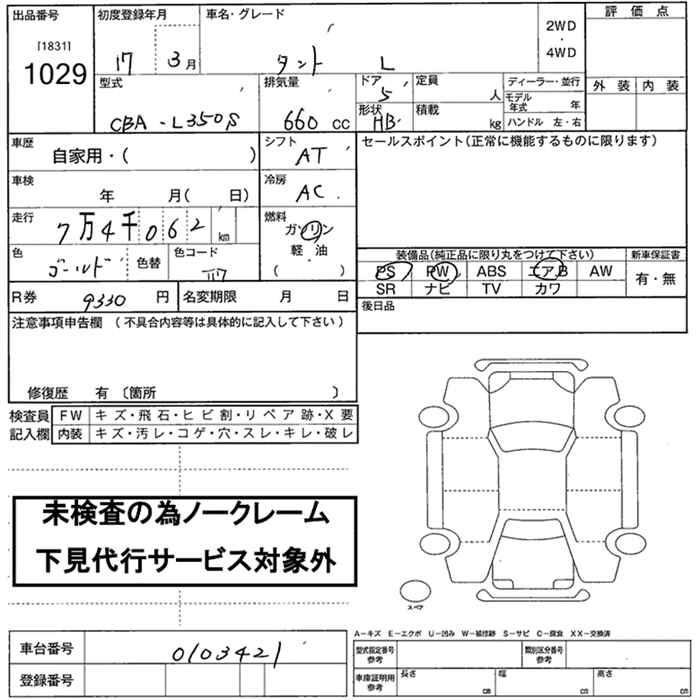 出品番号 初度登録年月 車名・グレード 2WD ・ 4WD 評価点
[1831]
1029
17 3月 タント L
外装 内装
型式 排気量 ドア 定員 ディーラー・並行
CBA-L350S 660 cc 5 人 モデル年式 年
形状 積載 ハンドル 左・右
HB kg
車歴 シフト セールスポイント(正常に機能するものに限ります)
自家用・( ) AT
車検 冷房
年 月( 日) AC
走行 燃料
7万4千062 km ガソリン
軽・油
( )
色 色替 色コード 装備品(純正品に限り丸をつけて下さい) 新車保証書
ゴールド PS PW ABS エアB AW 有・無
SR ナビ TV カワ
R券 9330 円 名変期限 月 日 後日品
注意事項申告欄 (不具合内容等は具体的に記入して下さい)
修復歴 有 〔箇所 〕
検査員 FW キズ・飛石・ヒビ割・リペア跡・X要
記入欄 内装 キズ・汚レ・コゲ・穴・スレ・キレ・破レ
未検査の為ノークレーム
下見代行サービス対象外
スペア
A−キズ E−エクボ U−凹み W−補修跡 S−サビ C−腐食 XX−交換済
車台番号 0103421 型式指定番号 参考 類別区分番号 参考
登録番号 車庫証明用 参考 長さ cm 幅 cm 高さ cm